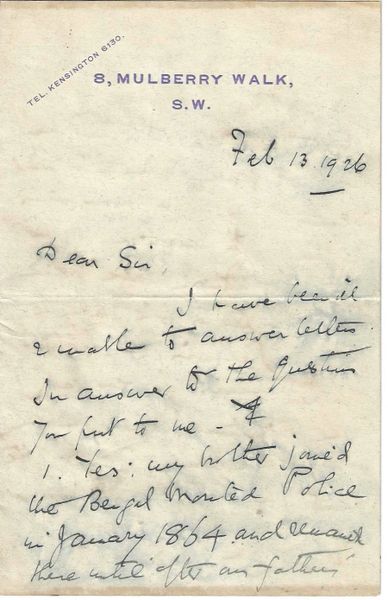 TEL. KENSINGTON 6130.
8, MULBERRY WALK,
S.W.
Feb 13 1926
Dear Sir,
I have been ill
& unable to answer letters.
In answer to the questions
you put to me -
1. Yes: my brother joined
the Bengal Mounted Police
in January 1864 and remained
there until after our father's